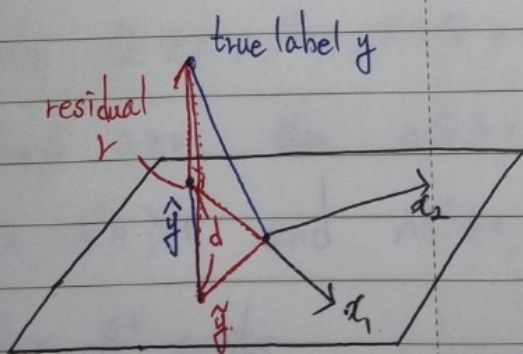 true label y
residual
r
ŷ
d
x₂
x₁
ỹ